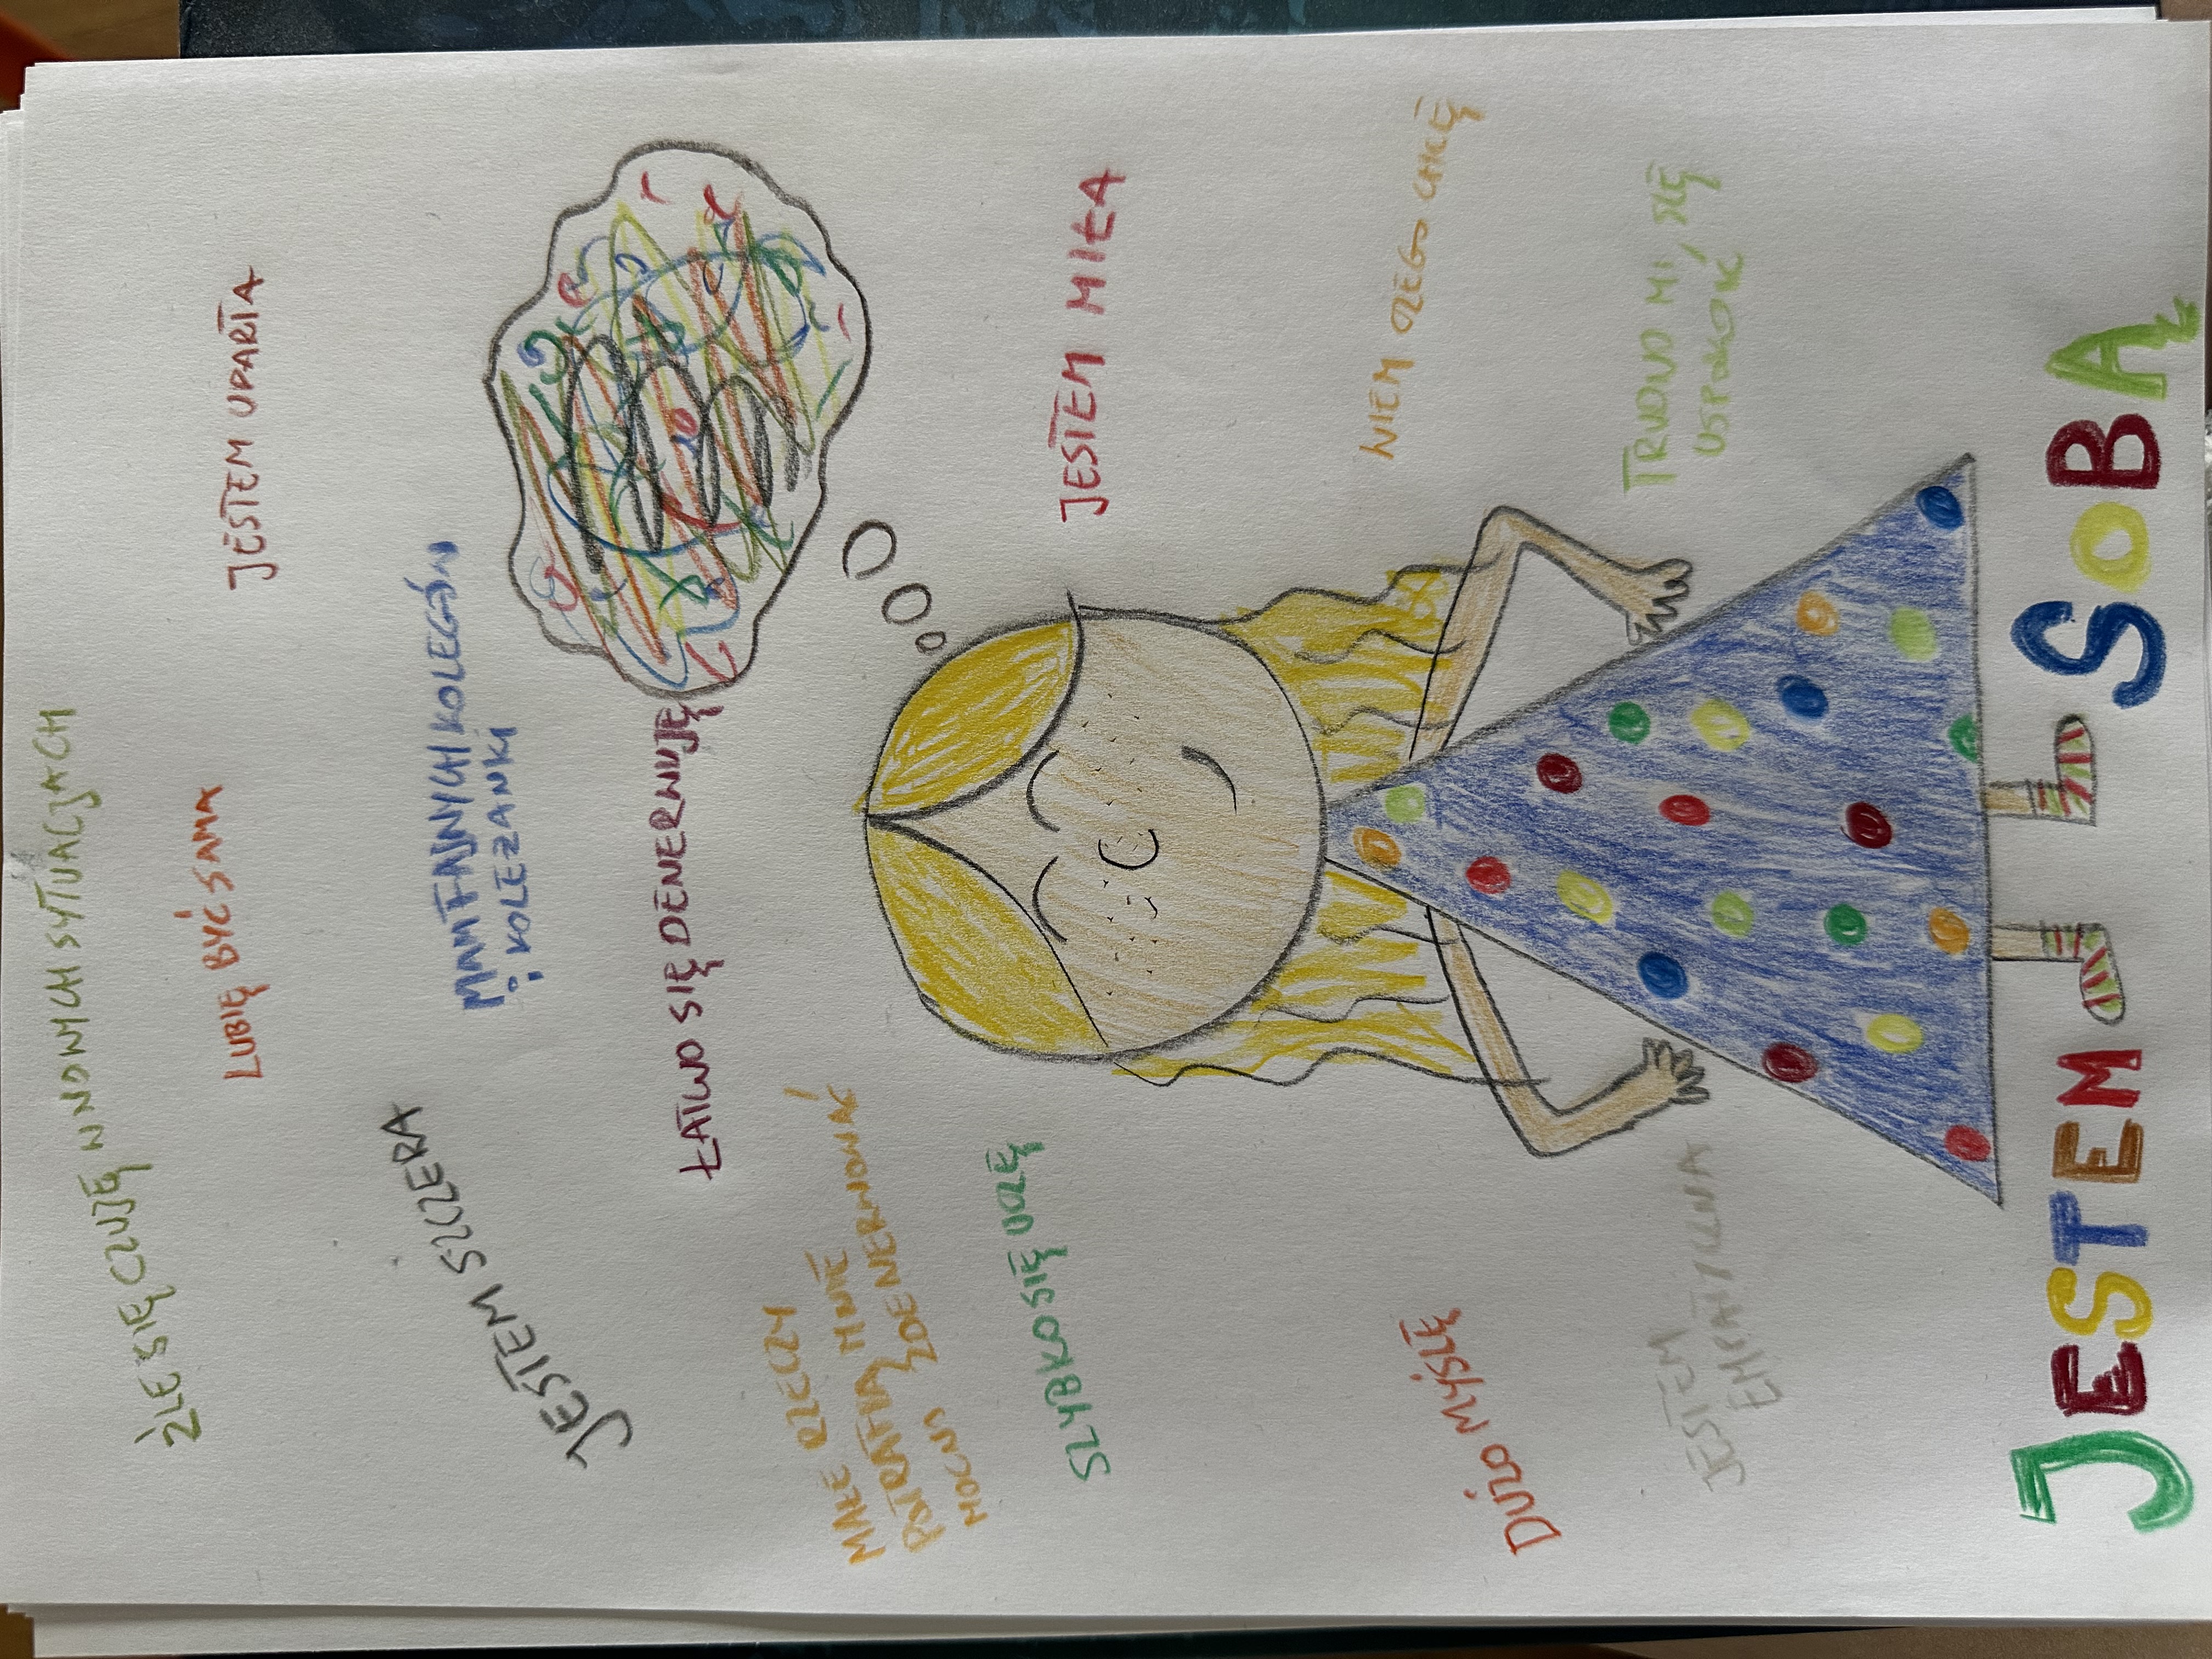 ŹLE SIĘ CZUJĘ W NOWYCH SYTUACJACH
LUBIĘ BYĆ SAMA
JESTEM UPARTA
JESTEM SZCZERA
MAM FAJNYCH KOLEGÓW
i KOLEŻANKI
ŁATWO SIĘ DENERWUJĘ
MAŁE RZECZY
POTRAFIĄ MNIE
MOCNO ZDENERWOWAĆ
SZYBKO SIĘ UCZĘ
JESTEM MIŁA
DUŻO MYŚLĘ
WIEM CZEGO CHCĘ
JESTEM
EMPATYCZNA
TRUDNO MI SIĘ
USPOKOIĆ
JESTEM SOBĄ